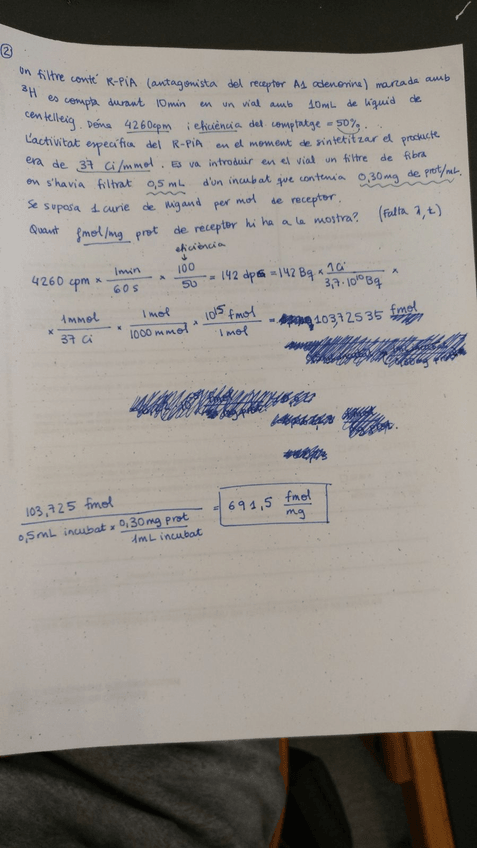 ②
Un filtre conté R-PiA (antagonista del receptor A1 adenorine) marzada amb
³H es compta durant 10min en un vial amb 10mL de líquid de
centelleig. Dóna 4260cpm i eficiència del comptatge = 50%.
L'activitat específica del R-PiA en el moment de sintetitzar el producte
era de 37 Ci/mmol. Es va introduir en el vial un filtre de fibra
on s'havia filtrat 0,5 mL d'un incubat que contenia 0,30mg de prot/mL.
Se suposa 1 curie de lligand per mol de receptor.
Quant fmol/mg prot de receptor hi ha a la mostra? (Falta λ, t)
eficiència
↓
4260 cpm × 1min/60 s × 100/50 = 142 dps = 142 Bq × 1Ci/3,7·10¹⁰ Bq ×
× 1mmol/37 Ci × 1mol/1000 mmol × 10¹⁵ fmol/1 mol = 103,72535 fmol
103,725 fmol / 0,5mL incubat × 0,30mg prot/1mL incubat = 691,5 fmol/mg